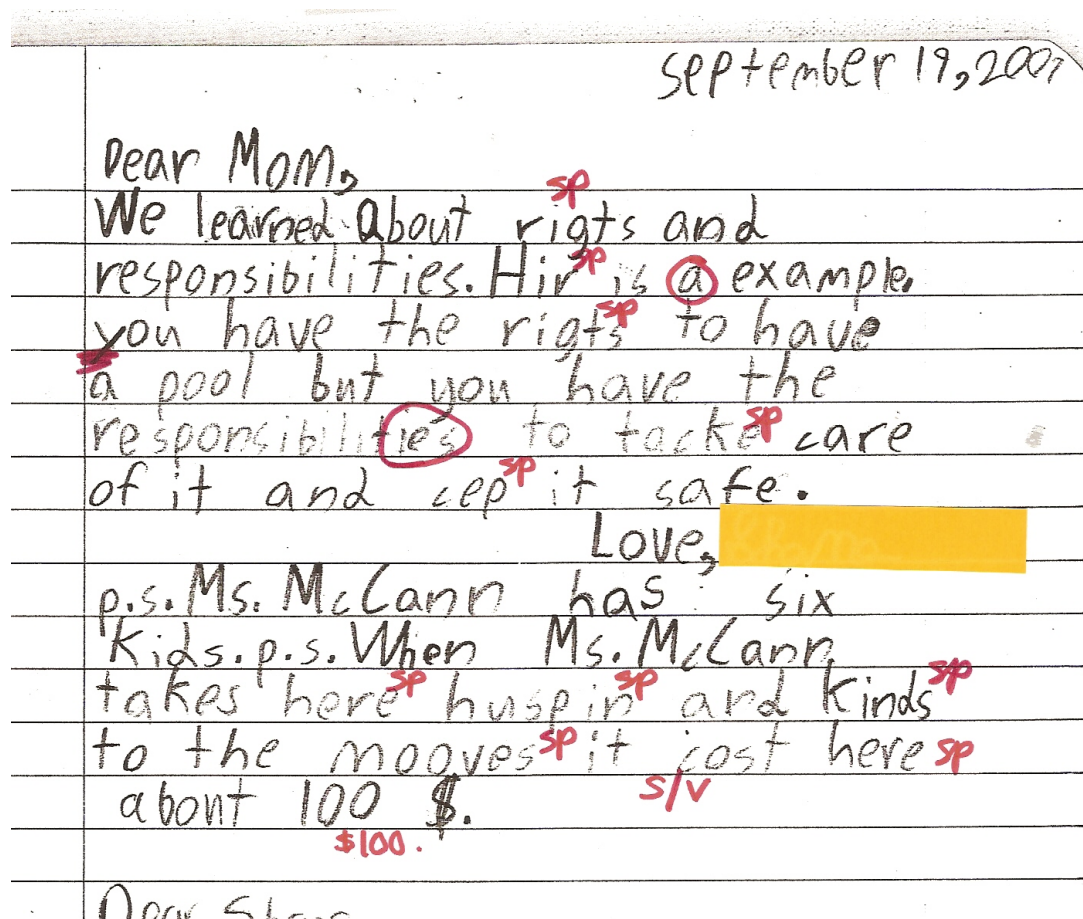 september 19, 2007
Dear Mom,
sp
We learned About rigts and
responsibilities. Hir sp is a example.
you have the rigts sp to have
a pool but you have the
responsibilities to tacke sp care
of it and cep sp it safe.
Love,
p.s. Ms. McCann has six
Kids. p.s. When Ms. McCann
takes here sp huspin sp and Kinds sp
to the mooves sp it cost here sp
s/v
about 100 $.
$100.
Dear